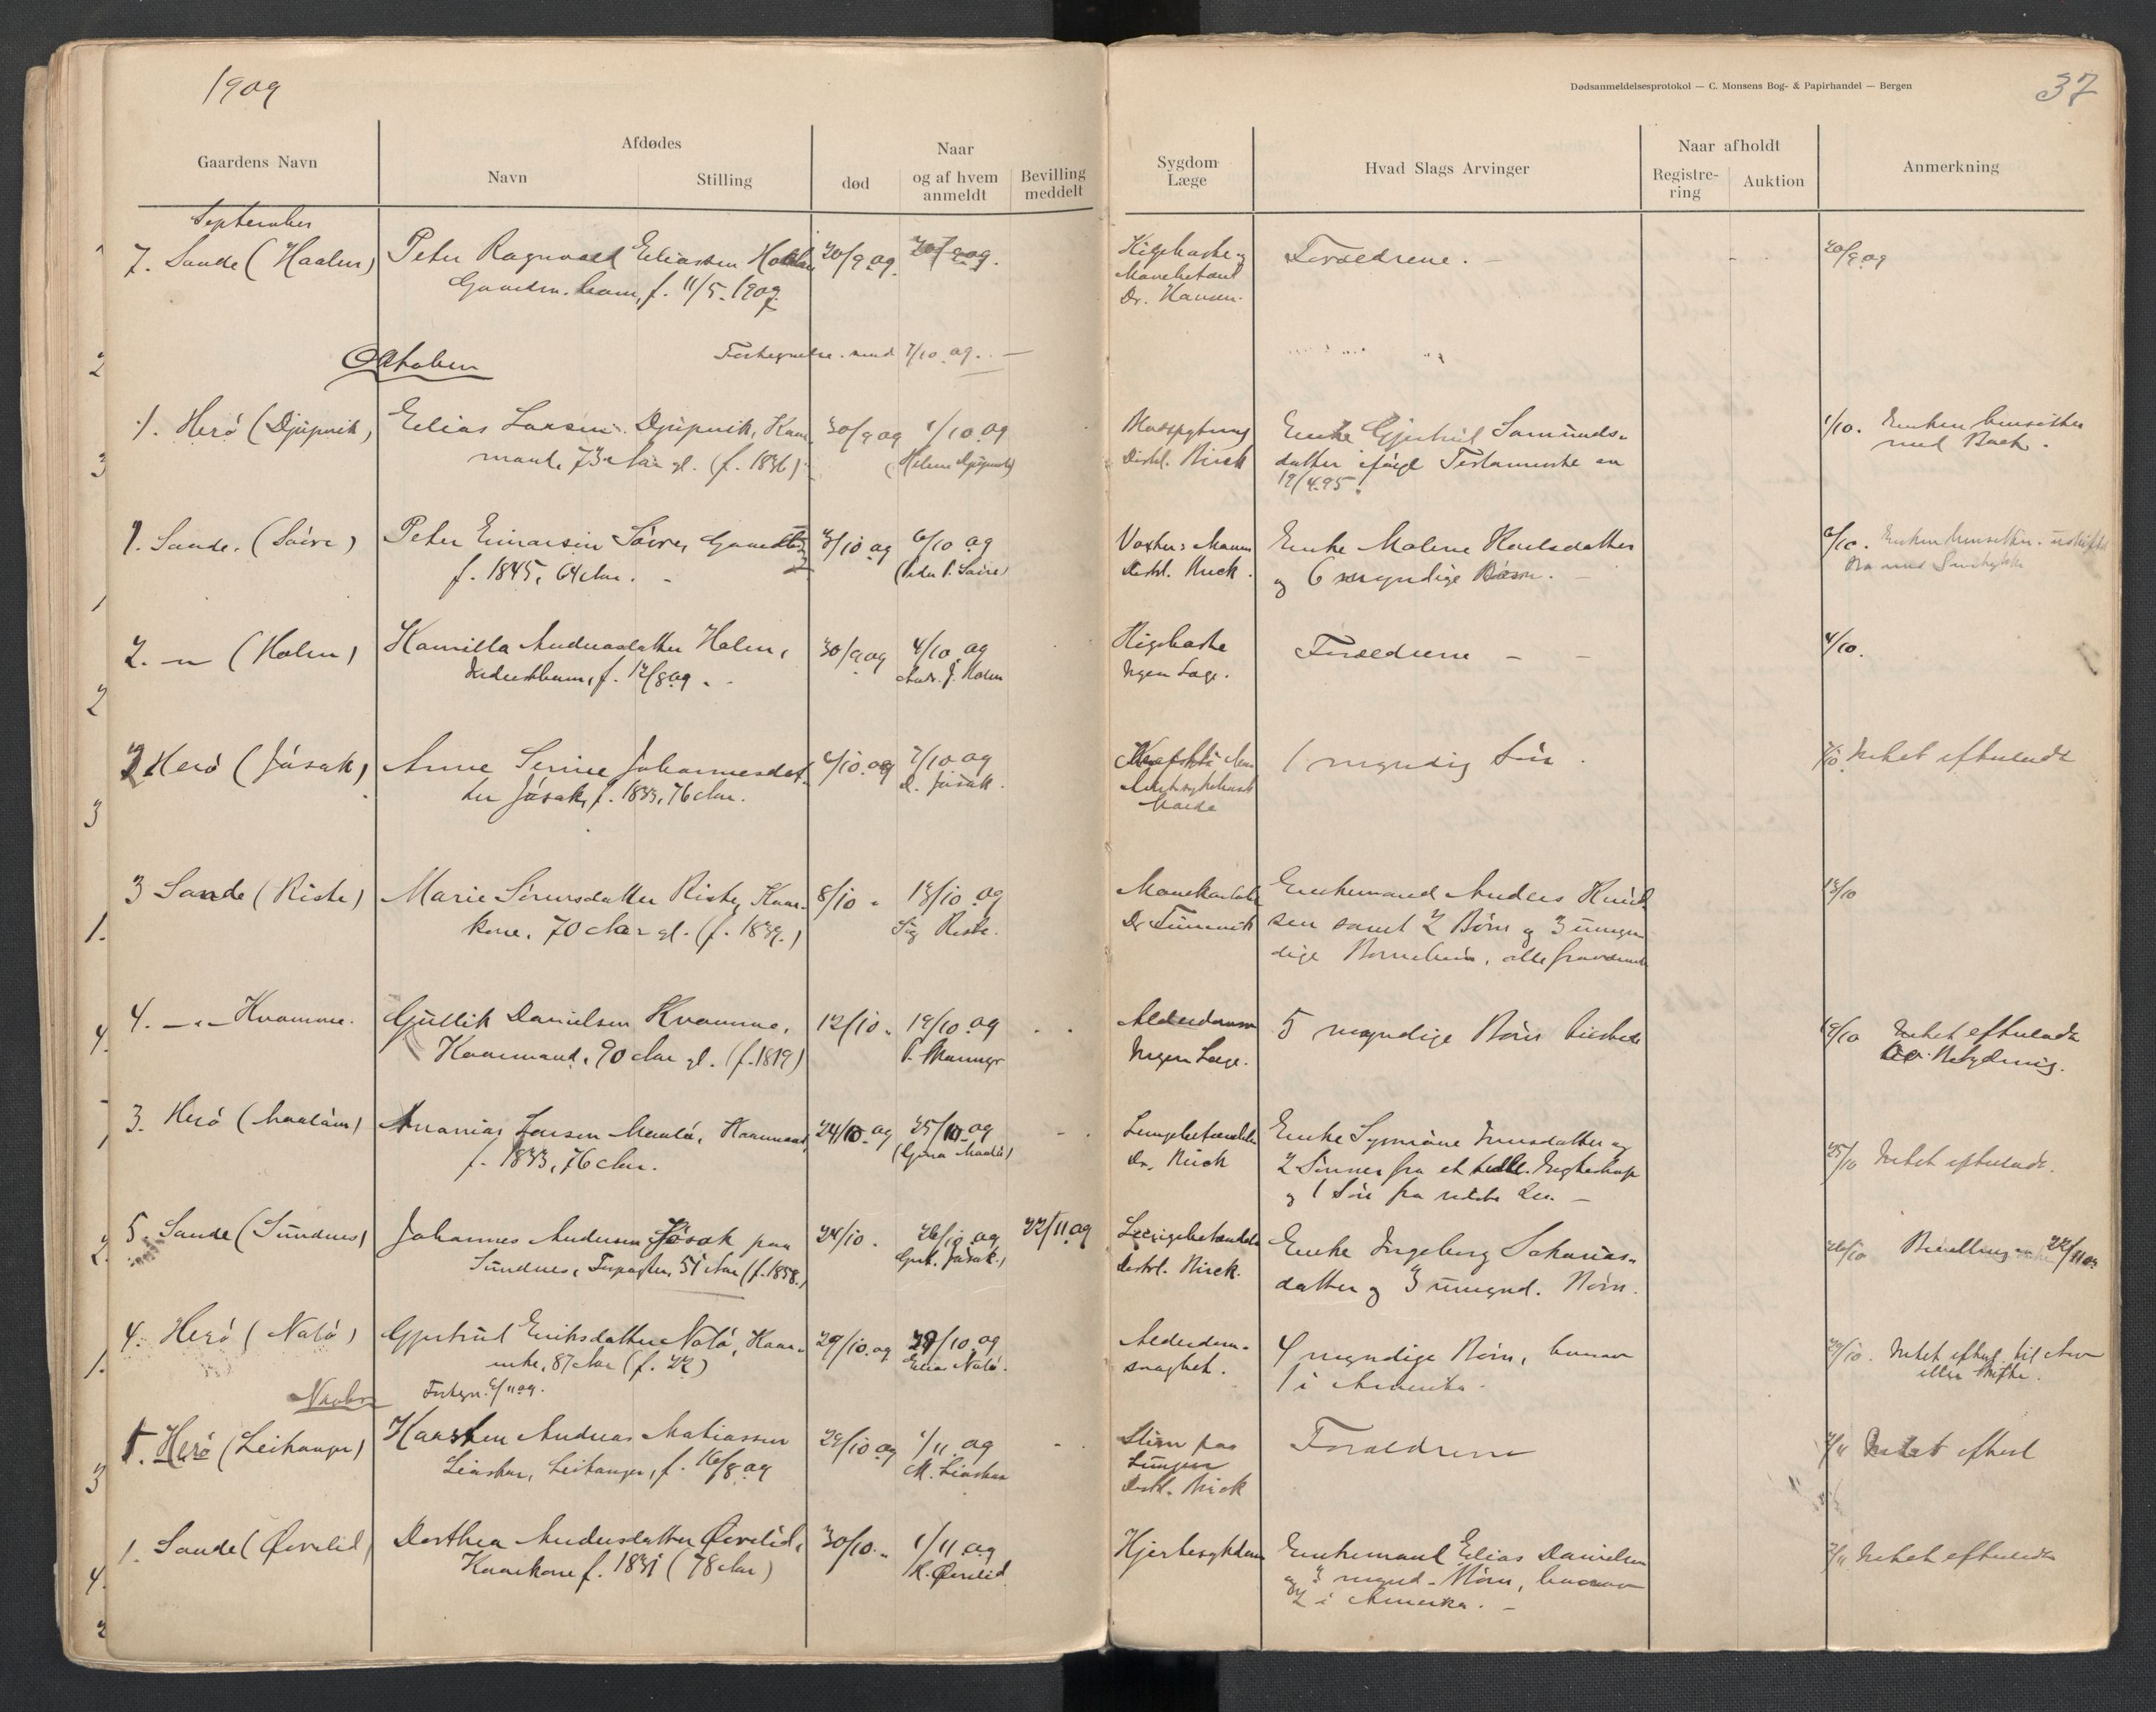 1909
Dødsanmeldelsesprotokol — C. Monsens Bog- & Papirhandel — Bergen
37
Gaardens Navn
Afdødes
Navn
Stilling
død
Naar
og af hvem
anmeldt
Bevilling
meddelt
Sygdom
Læge
Hvad Slags Arvinger
Naar afholdt
Registre-
ring
Auktion
Anmerkning
September
7. Sande (Haalen)
Peter Ragnvald Eliassen
f. 11/5. 1909
20/9 09.
20/9 09.
Kighoste og
Dr. Hansen.
Forældrene.
20/9 09
Oktober
Fortegnelse. send 1/10 09. —
1. Herö (Djupvik)
Elias Larsen Djupvik, Kaar-
mand, 73 Aar gl. (f. 1836)
30/9 09
1/10 09
(Helene Djupvik)
Distrl. Rieck
Enke Gjertrud Samunds-
datter ifölge Testamente av
19/4.95.
1/10. Enken hensitter
med Boet.
1. Sande. (Saire)
Peter Einarsen Saire, Gaardbr
f. 1845, 64 Aar.
3/10 09
6/10 09
(Peder P. Saire)
Distrl. Rieck.
Enke Malene Karlsdatter
og 6 myndige Börn.
6/10. Enken hensitter i uskiftet
Bo med
2. — " — (Holen)
Kamilla Andreasdatter Holen,
f. 12/8 09.
30/9 09
4/10 09
Andr. J. Holen
Kighoste
Ingen Læge.
Forældrene
4/10.
2 Herö (Jösak)
Anne Serine Johannesdat-
ter Jösak, f. 1833, 76 Aar.
6/10. 09
7/10 09
D. Jösak.
Amtssykehuset
Molde
1 myndig Sön.
7/10. Intet efterladt
3 Sande (Riste)
Marie Sivursdatter Riste, Kaar-
kone, 70 Aar gl. (f. 1839.)
8/10 "
13/10 09
Sig Riste.
Mavekatarh
Enkemand Anders Knud-
sen samt 2 Börn og 3 umyn
dige Börnebörn, alle fraværende
13/10
4. — " — Kvamme.
Gjullik Danielsen Kvamme,
Kaarmand, 90 Aar gl. (f. 1819)
12/10 "
19/10 09
Alderdom
Ingen Læge.
5 myndige Börn tilstede
19/10 Intet efterladt
av Betydning.
3. Herö (
Ananias Larsen Kaarmand,
f. 1833, 76 Aar.
24/10 09
25/10 09
Lungebetændelse
Dr. Rieck
Enke Synnöve Jensdatter og
2 Sönner fra et tidl. Egteskap
og 1 Sön fra sidste
25/10 Intet efterladt.
5. Sande (Sundnes)
Johannes Andersen Jösak paa
Sundnes, Forpagter, 51 Aar (f. 1858.)
24/10.
26/10 09
22/11 09
Lungebetændelse
Distrl. Rieck.
Enke Ingeborg Sakarias-
datter og 3 umynd. Börn.
26/10 Bevilling 22/11 09
4. Herö (Nalö)
Gjertrud Eriksdatter Nalö, Kaar-
enke, 87 Aar (f. 22)
29/10. 09
29/10. 09
Elias Nalö.
Alderdom-
svaghet.
4 myndige Börn, hvorav
1 i Amerika.
29/10. Intet efterl. til Arv
eller Skifte.
Novbr
Fortegn. 6/11 09.
1. Herö (Leikanger)
Karsten Andreas Matiassen
Liaskar, Leikanger, f. 16/8 09
29/10 09
1/11 09
M. Liaskar
Sliim paa
Lungen
Distrl. Rieck
Forældrene
1/11 Intet efterl
1. Sande (Övrelid)
Dorthea Andersdatter Övrelid,
Kaarkone f. 1831 (78 Aar)
30/10. "
1/11 09
K. Övrelid
Hjertesykdom
Enkemand Elias Danielsen
og 3 mynd. Börn, hvorav
2 i Amerika. —
1/11 Intet efterladt